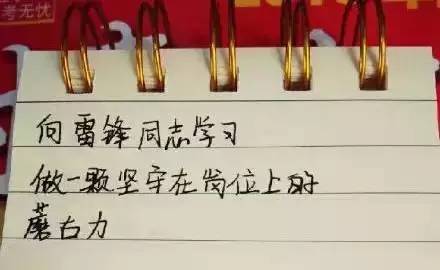 考无忧
向雷锋同志学习
做一颗坚守在岗位上的
蘑古力